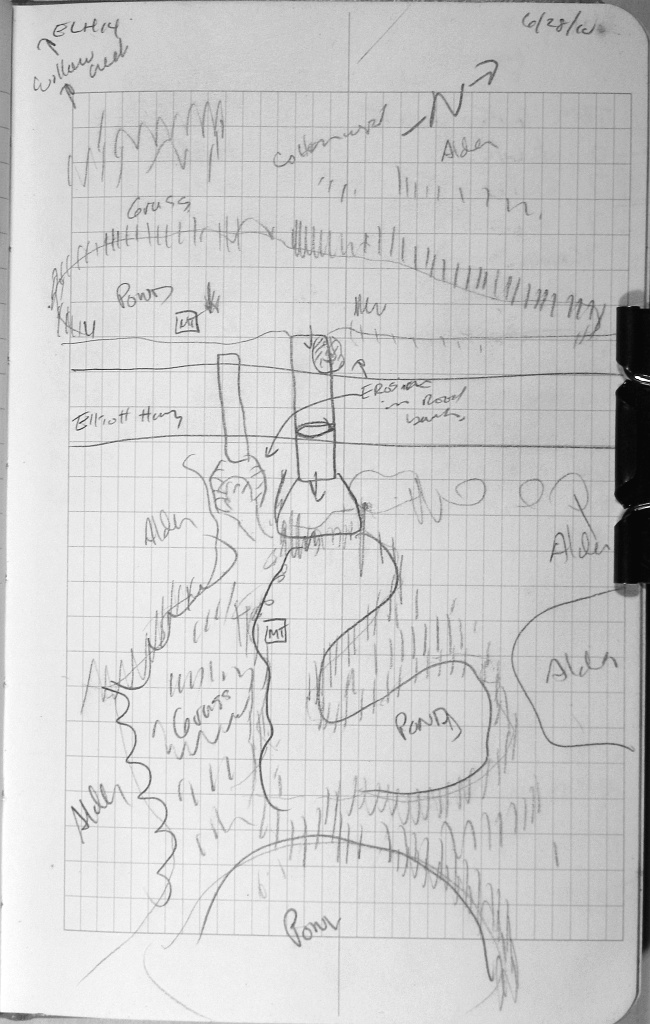 ELH14
6/28/10
Willow Creek
N
Cottonwood
Alder
Grass
Pond
MT
Erosion
in Road
bank
Elliott Hwy
Alder
Alder
MT
Alder
Grass
Pond
Alder
Pond